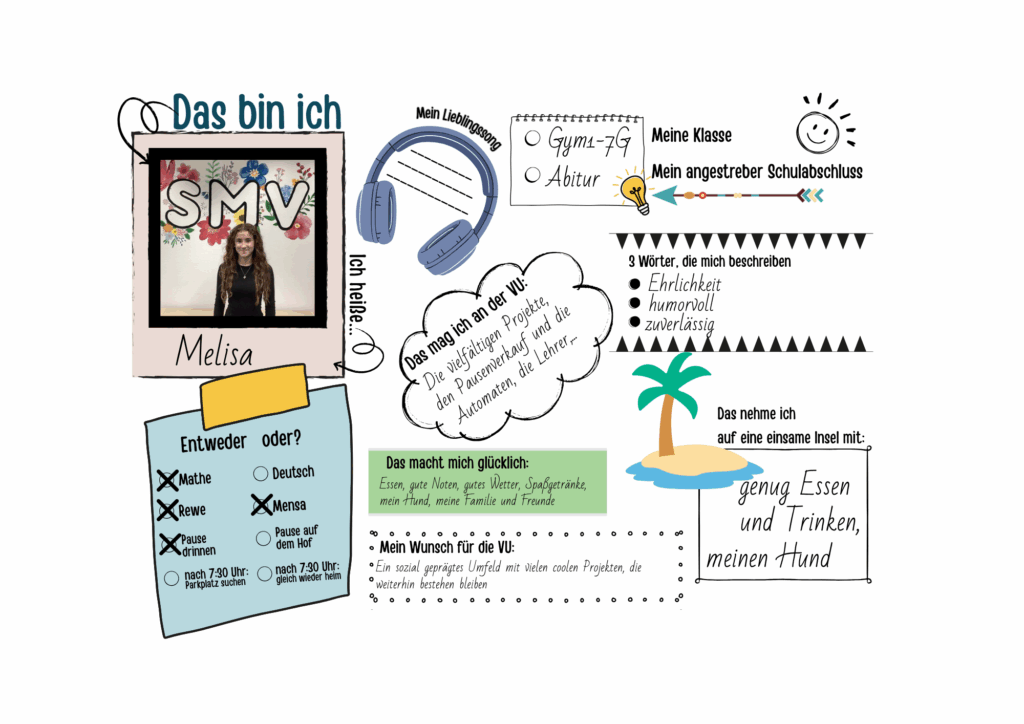 Das bin ich
SMV
Ich heiße...
Melisa
Mein Lieblingssong
Gym1-7G
Abitur
Meine Klasse
Mein angestreber Schulabschluss
3 Wörter, die mich beschreiben
Ehrlichkeit
humorvoll
zuverlässig
Das mag ich an der VU:
Die vielfältigen Projekte,
den Pausenverkauf und die
Automaten, die Lehrer,..
Entweder oder?
Mathe
Deutsch
Rewe
Mensa
Pause
drinnen
Pause auf
dem Hof
nach 7:30 Uhr:
Parkplatz suchen
nach 7:30 Uhr:
gleich wieder heim
Das macht mich glücklich:
Essen, gute Noten, gutes Wetter, Spaßgetränke,
mein Hund, meine Familie und Freunde
Mein Wunsch für die VU:
Ein sozial geprägtes Umfeld mit vielen coolen Projekten, die
weiterhin bestehen bleiben
Das nehme ich
auf eine einsame Insel mit:
genug Essen
und Trinken,
meinen Hund